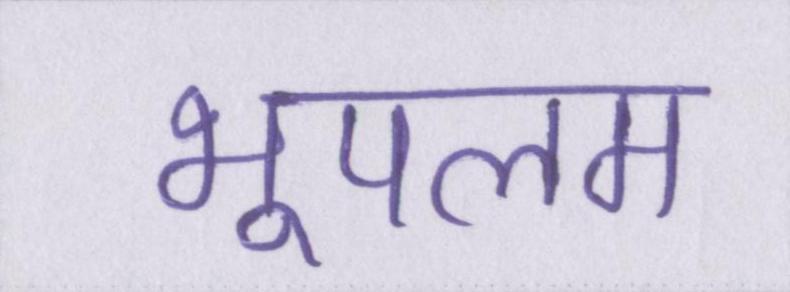 भूपलम